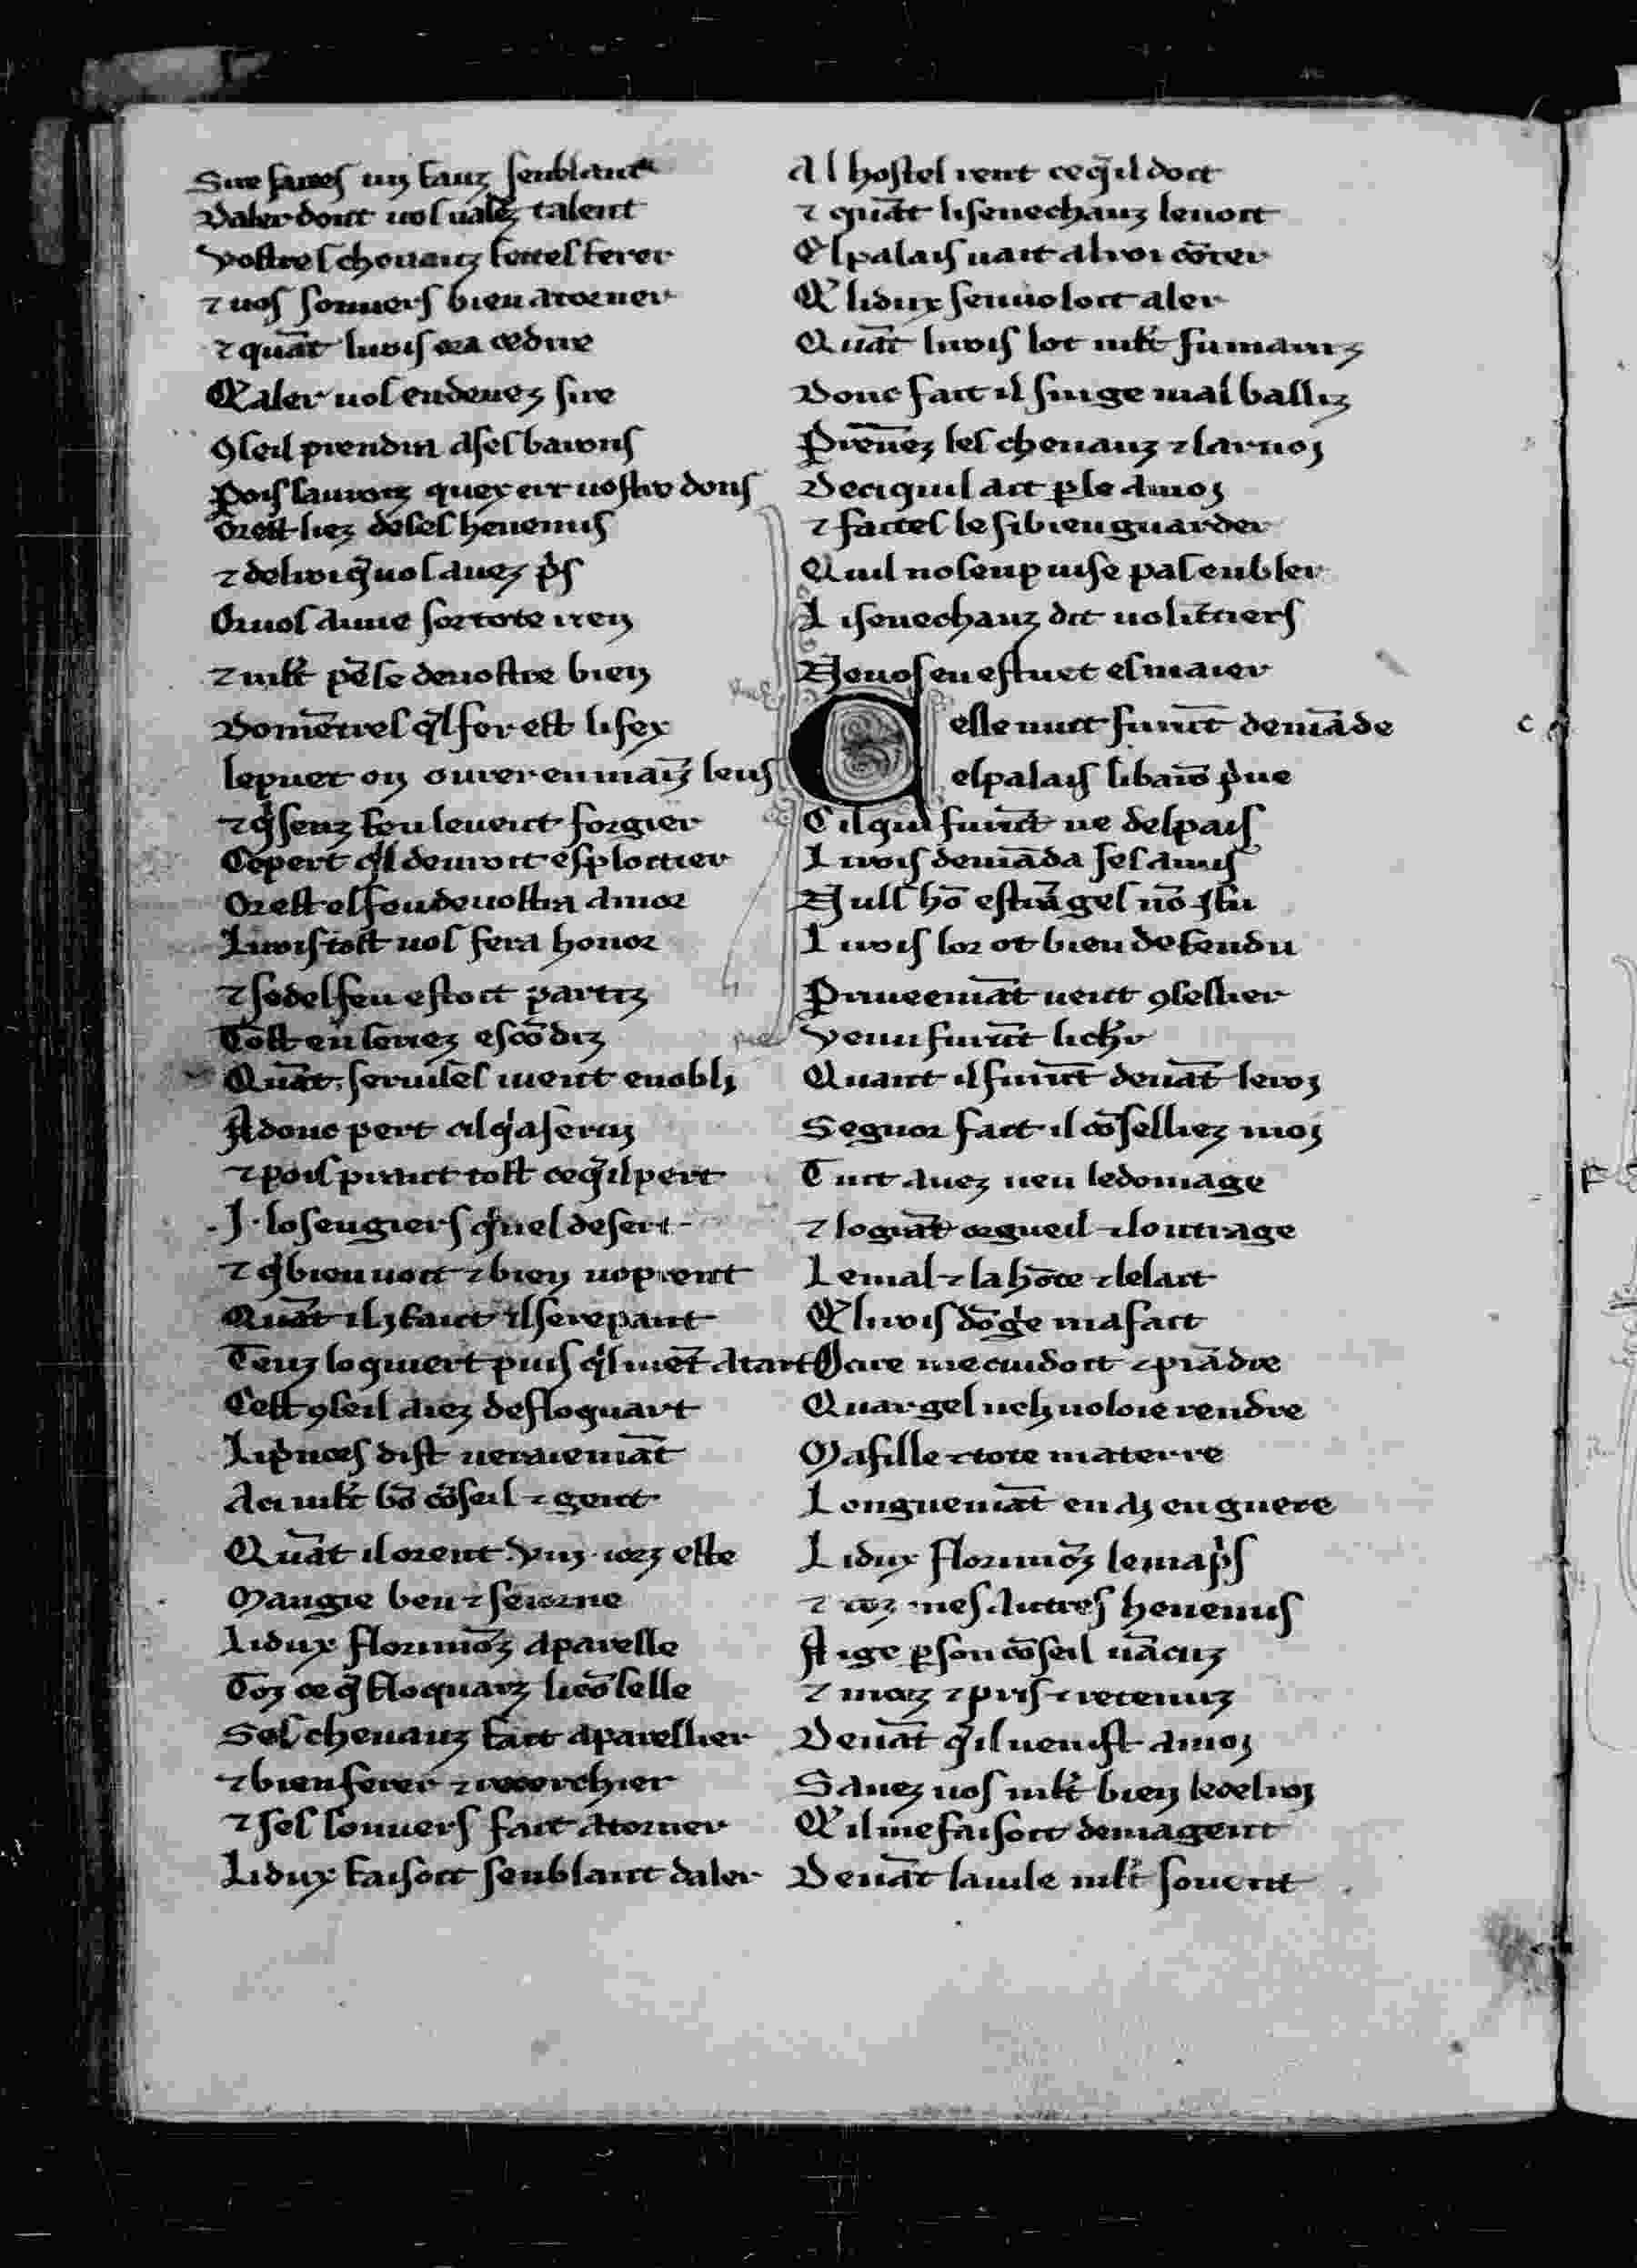 Sire faites un fauz senblant
Daler dont uos ualez talent
Vostres cheuauz feites ferer
⁊ uos somiers bien atorner
⁊ quãt li rois ora ce dire
Q̓ aler uos en deuez sire
ꝯseil prendra a ses barons
Pois saurois quex ert uostre dons
Or est liez de ses henemis
⁊ del roi q̃ uos auez p̾s
Or uos aime sor tote ren
⁊ mlt̃ pẽse de uostre bien
Domẽtres q̃l fer est li fex
Le puet on ourer en maĩz leus
⁊ q̾ senz feu le ueut forgier
Ce pert q̾l deuroit esploitier
Or est el feu de uostra amor
Li rois tost uos fera honor
⁊ se del feu estoit partiz
Tost en seriez escõdiz
Quãt seruises uient en obli
Adonc pert cil q̾ a serui
⁊ pois prant tost ce q̃ il pert
.I. losengiers q̾ nel desert
⁊ q̾ bien uoit ⁊ bien no prent
Quãt il i faut il se repant
Teuz lo quiert puis q̾l uiẽt a tart
Cest ꝯseil aiez de floquart
Li p̾nces dist ueraiemãt
Ici mlt̃ bõ cõseil ⁊ gent
Quãt il orent .viii. iorz este
Mangie beu ⁊ seiorne
Li dux florimõz aparelle
Toz ce q̃ floquarz li cõselle
Ses cheuauz fait aparellier
⁊ bien ferer ⁊ recerchier
⁊ ses somiers fait atorner
Li dux faisoit senblant daler
Al hostel rent ce q̃ il doit
⁊ quãt li senechauz le uoit
El palais uait al roi cõter
Q̓ li dux sen uoloit aler
Quãt li rois lot mlt̃ fu mariz
Donc fait il sui ge mal balliz
Prẽnez les cheuauz ⁊ larnoi
Deci qu il ait ꝑle a moi
⁊ faites le si bien guarder
Qu il no seu puise pas enbler
Li senechauz dit uolũtiers
Ne uos en estuet esmaier
Celle nuit furũt demãde
el palais li barõ p̾ue
Cil qui furũt ne del pais
Li rois demãda ses amis
Null hõ estrãges nõ i fu
Li rois lor ot bien defendu
Priueemãt uent ꝯsellier
Venu furũt li ch̾r
Quant il furũt deuãt le roi
Segnor fait il cõselliez moi
Tuit auez ueu le domage
⁊ lo grãt orgueil ⁊ lo utrage
Le mal ⁊ la hõte ⁊ le lait
Q̓ li rois dõg̾e ma fait
Ocire me cuidoit ⁊ prãdre
Quar gel neli uoloie rendre
Ma fille ⁊ tote ma terre
Longuemãt en ai en guere
Li dux florimõz le ma p̾s
⁊ toz mes autres henemis
Ai ge ꝑ son cõseil uãcuz
⁊ morz ⁊ pris ⁊ retenuz
Deuãt q̃ il uenist a moi
Sauez uos mlt̃ bien le desroi
Q̓ il me faisoit de ma gent
Deuãt la uile mlt̃ souent